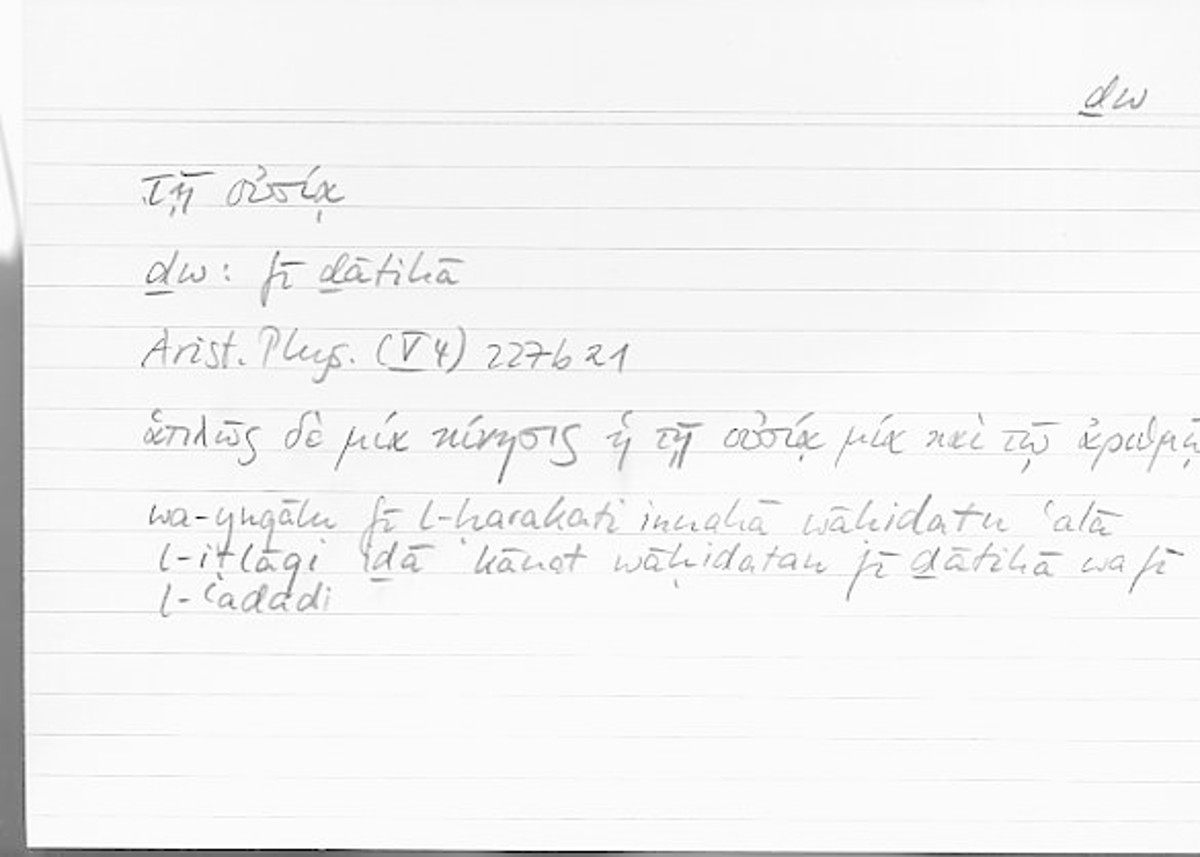 ḏw
τῇ οὐσίᾳ
ḏw: fī ḏātihā
Arist. Phys. (V 4) 227b21
ἁπλῶς δὲ μία κίνησις ἡ τῇ οὐσίᾳ μία καὶ τῷ ἀριθμῷ
wa-yuqālu fī l-ḥarakati innahā wāḥidatu ʿalā
l-iṭlāqi iḏā kānat wāḥidatan fī ḏātihā wa fī
l-ʿadadi